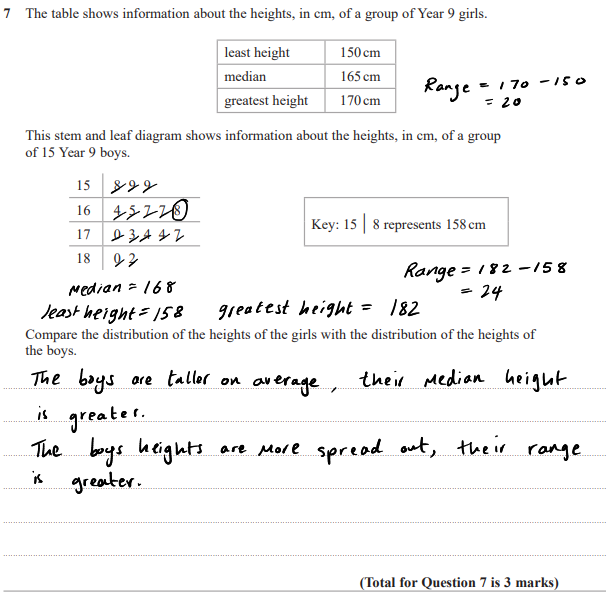 7 The table shows information about the heights, in cm, of a group of Year 9 girls.
least height 150 cm
median 165 cm
greatest height 170 cm
Range = 170 - 150
= 20
This stem and leaf diagram shows information about the heights, in cm, of a group
of 15 Year 9 boys.
15 8 9 9
16 4 5 7 7 8
17 0 3 4 4 7
18 0 2
Key: 15 | 8 represents 158 cm
Range = 182 - 158
= 24
Median = 168
least height = 158 greatest height = 182
Compare the distribution of the heights of the girls with the distribution of the heights of
the boys.
The boys are taller on average, their median height
is greater.
The boys heights are more spread out, their range
is greater.
(Total for Question 7 is 3 marks)